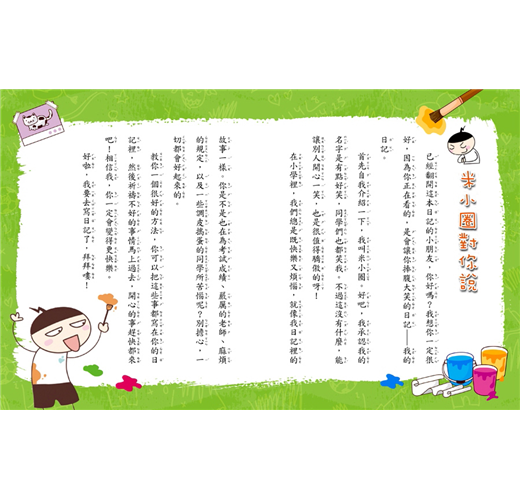 米小圈對你說
已經翻開這本日記的小朋友，你好嗎？我想你一定很
好，因為你正在看的，是會讓你捧腹大笑的日記——我的
日記。
首先自我介紹一下，我叫米小圈。好吧，我承認我的
名字是有點好笑，同學們也都笑我，不過這沒有什麼，能
讓別人開心一笑，也是很值得驕傲的呀！
在小學裡，我們總是既快樂又煩惱，就像我日記裡的
故事一樣。你是不是也在為考試成績、嚴厲的老師、麻煩
的規定，以及一些調皮搗蛋的同學所苦惱呢？別擔心，一
切都會好起來的。
教你一個很好的方法，你可以把這些事都寫在你的日
記裡，然後祈禱不好的事情馬上過去，開心的事趕快都來
吧！相信我，你一定會變得更快樂。
好啦，我要去寫日記了，拜拜嘍！